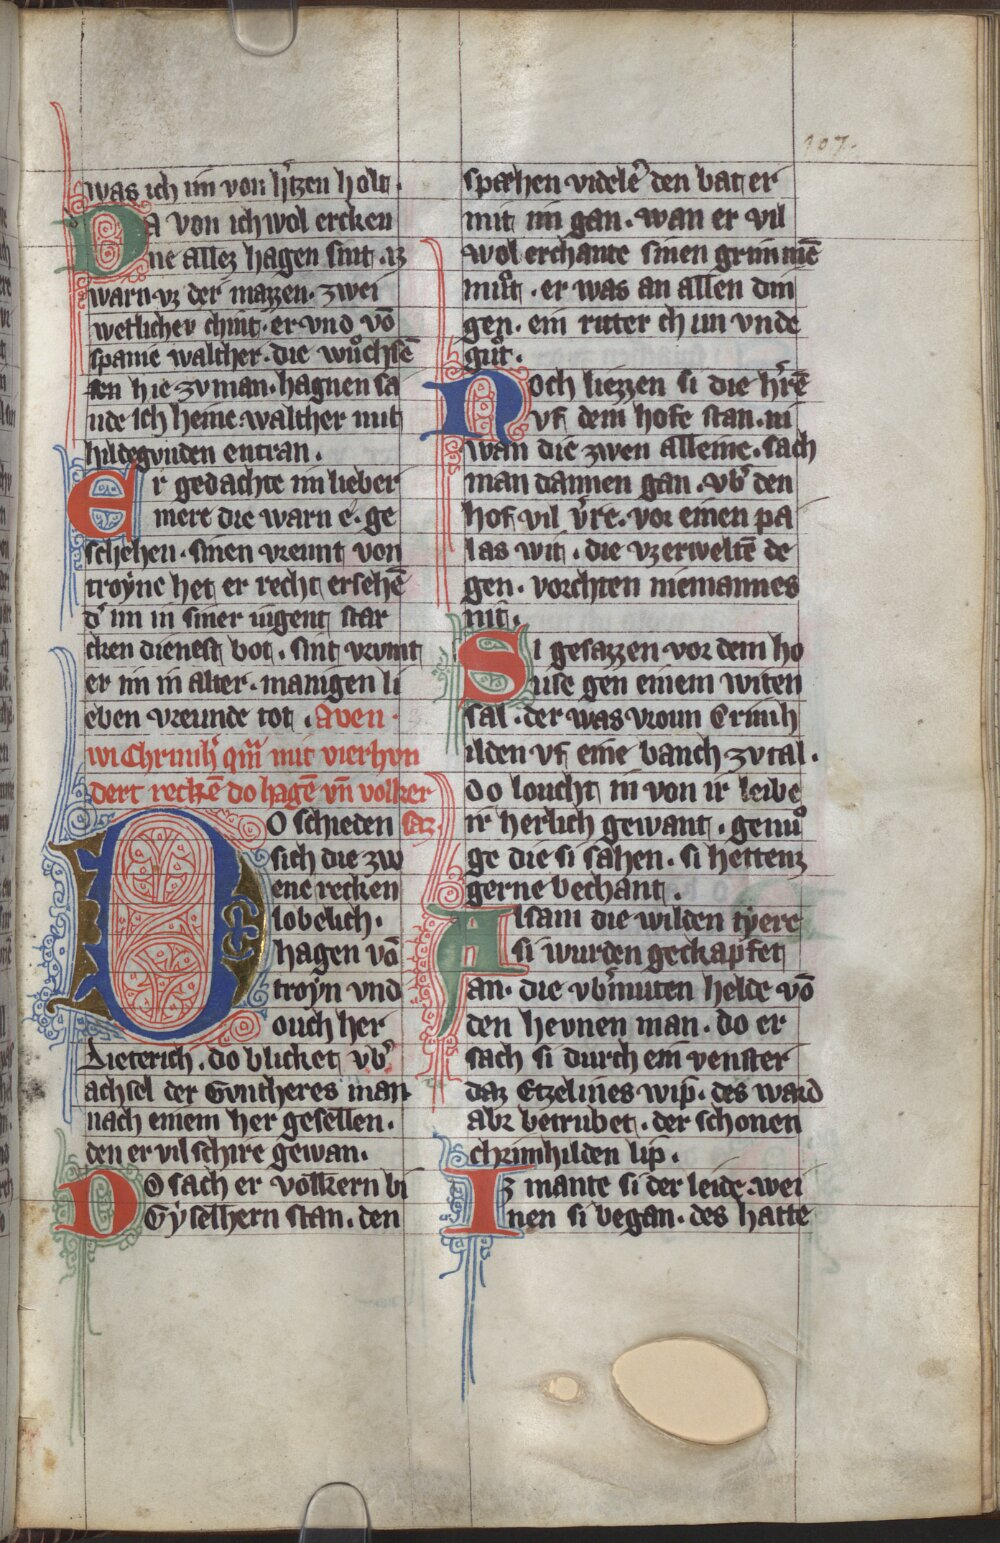 107.
was ich im von h'tzen holt.
Da von ich wol ercken
ne allez hagen sint. iz
warn. vz der mazzen. zwei
wetlicher chint. er vnd vō
spanie walther. die wůchsē
en hie zv man. hagnen sa
nde ich heine. walther mit
hildegvnden entran.
Er gedachte im lieber
mere die warn e. ge
schehen. sinen vreunt von
troyne het er recht ersehē
d' im in siner iugent star
cken dienest bot. sint vrumt
er im in alter. manigen li
eben vreunde tot. Aven
wi Chrimh' qm̄ mit vierhvn
dert reckē do hagē vn̄ volker
saz.
DO schieden
sich die zw
ene recken
lobelich.
hagen vō
troyn vnd
ouch her
Dieterich. do blicket vb'
achsel der Gvntheres man
nach einem her gesellen.
den er vil schire gewan.
DO sach er volkern bi
Gyselhern stan. den
spæhen videlē den bat er
mit im gan. wan er vil
wol erchante sinen grimmē
můt. er was an allen din
gen. ein ritter chun vnde
gůt.
Noch liezzen si die h'rē
vf dem hofe stan. ni
wan die zwen alleine. sach
man dannen gan. vb' den
hof vil v're. vor einen pa
las wit. die vzerweltē de
gen. vorchten niemannes
nit.
Si gesazzen vor dem ho
use gen einem witen
sal. der was vroun Crimh
ilden vf eine banch zv tal.
do loucht in von ir leibe
ir herlich gewant. genů
ge die si sahen. si hettenz
gerne bechant.
Alsam die wilden tyere
si wurden gechapfet
an. die vb'muten helde vō
den hevnen man. do er
sach si durch ein venster
daz Etzelines wip. des ward
abr betrubet. der schonen
chrimhilden lip.
Iz mante si der leide. wei
nen si began. des hatte